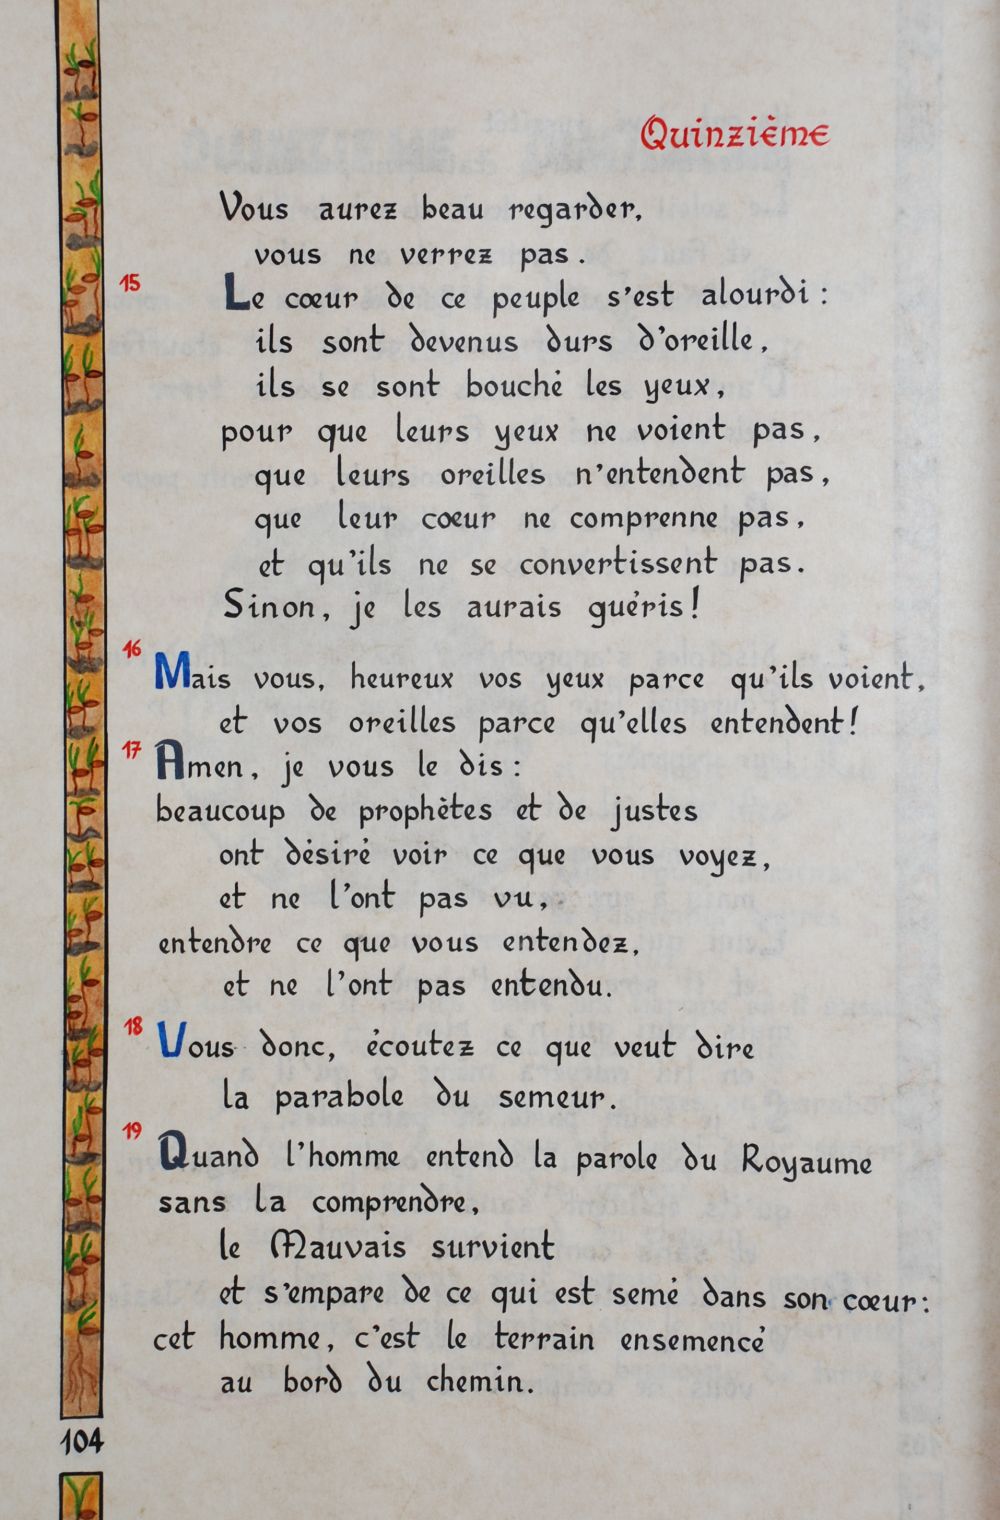 Quinzième
Vous aurez beau regarder,
vous ne verrez pas.
15 Le cœur de ce peuple s'est alourdi :
ils sont devenus durs d'oreille,
ils se sont bouché les yeux,
pour que leurs yeux ne voient pas,
que leurs oreilles n'entendent pas,
que leur cœur ne comprenne pas,
et qu'ils ne se convertissent pas.
Sinon, je les aurais guéris !
16 Mais vous, heureux vos yeux parce qu'ils voient,
et vos oreilles parce qu'elles entendent !
17 Amen, je vous le dis :
beaucoup de prophètes et de justes
ont désiré voir ce que vous voyez,
et ne l'ont pas vu,
entendre ce que vous entendez,
et ne l'ont pas entendu.
18 Vous donc, écoutez ce que veut dire
la parabole du semeur.
19 Quand l'homme entend la parole du Royaume
sans la comprendre,
le Mauvais survient
et s'empare de ce qui est semé dans son cœur :
cet homme, c'est le terrain ensemencé
au bord du chemin.
104